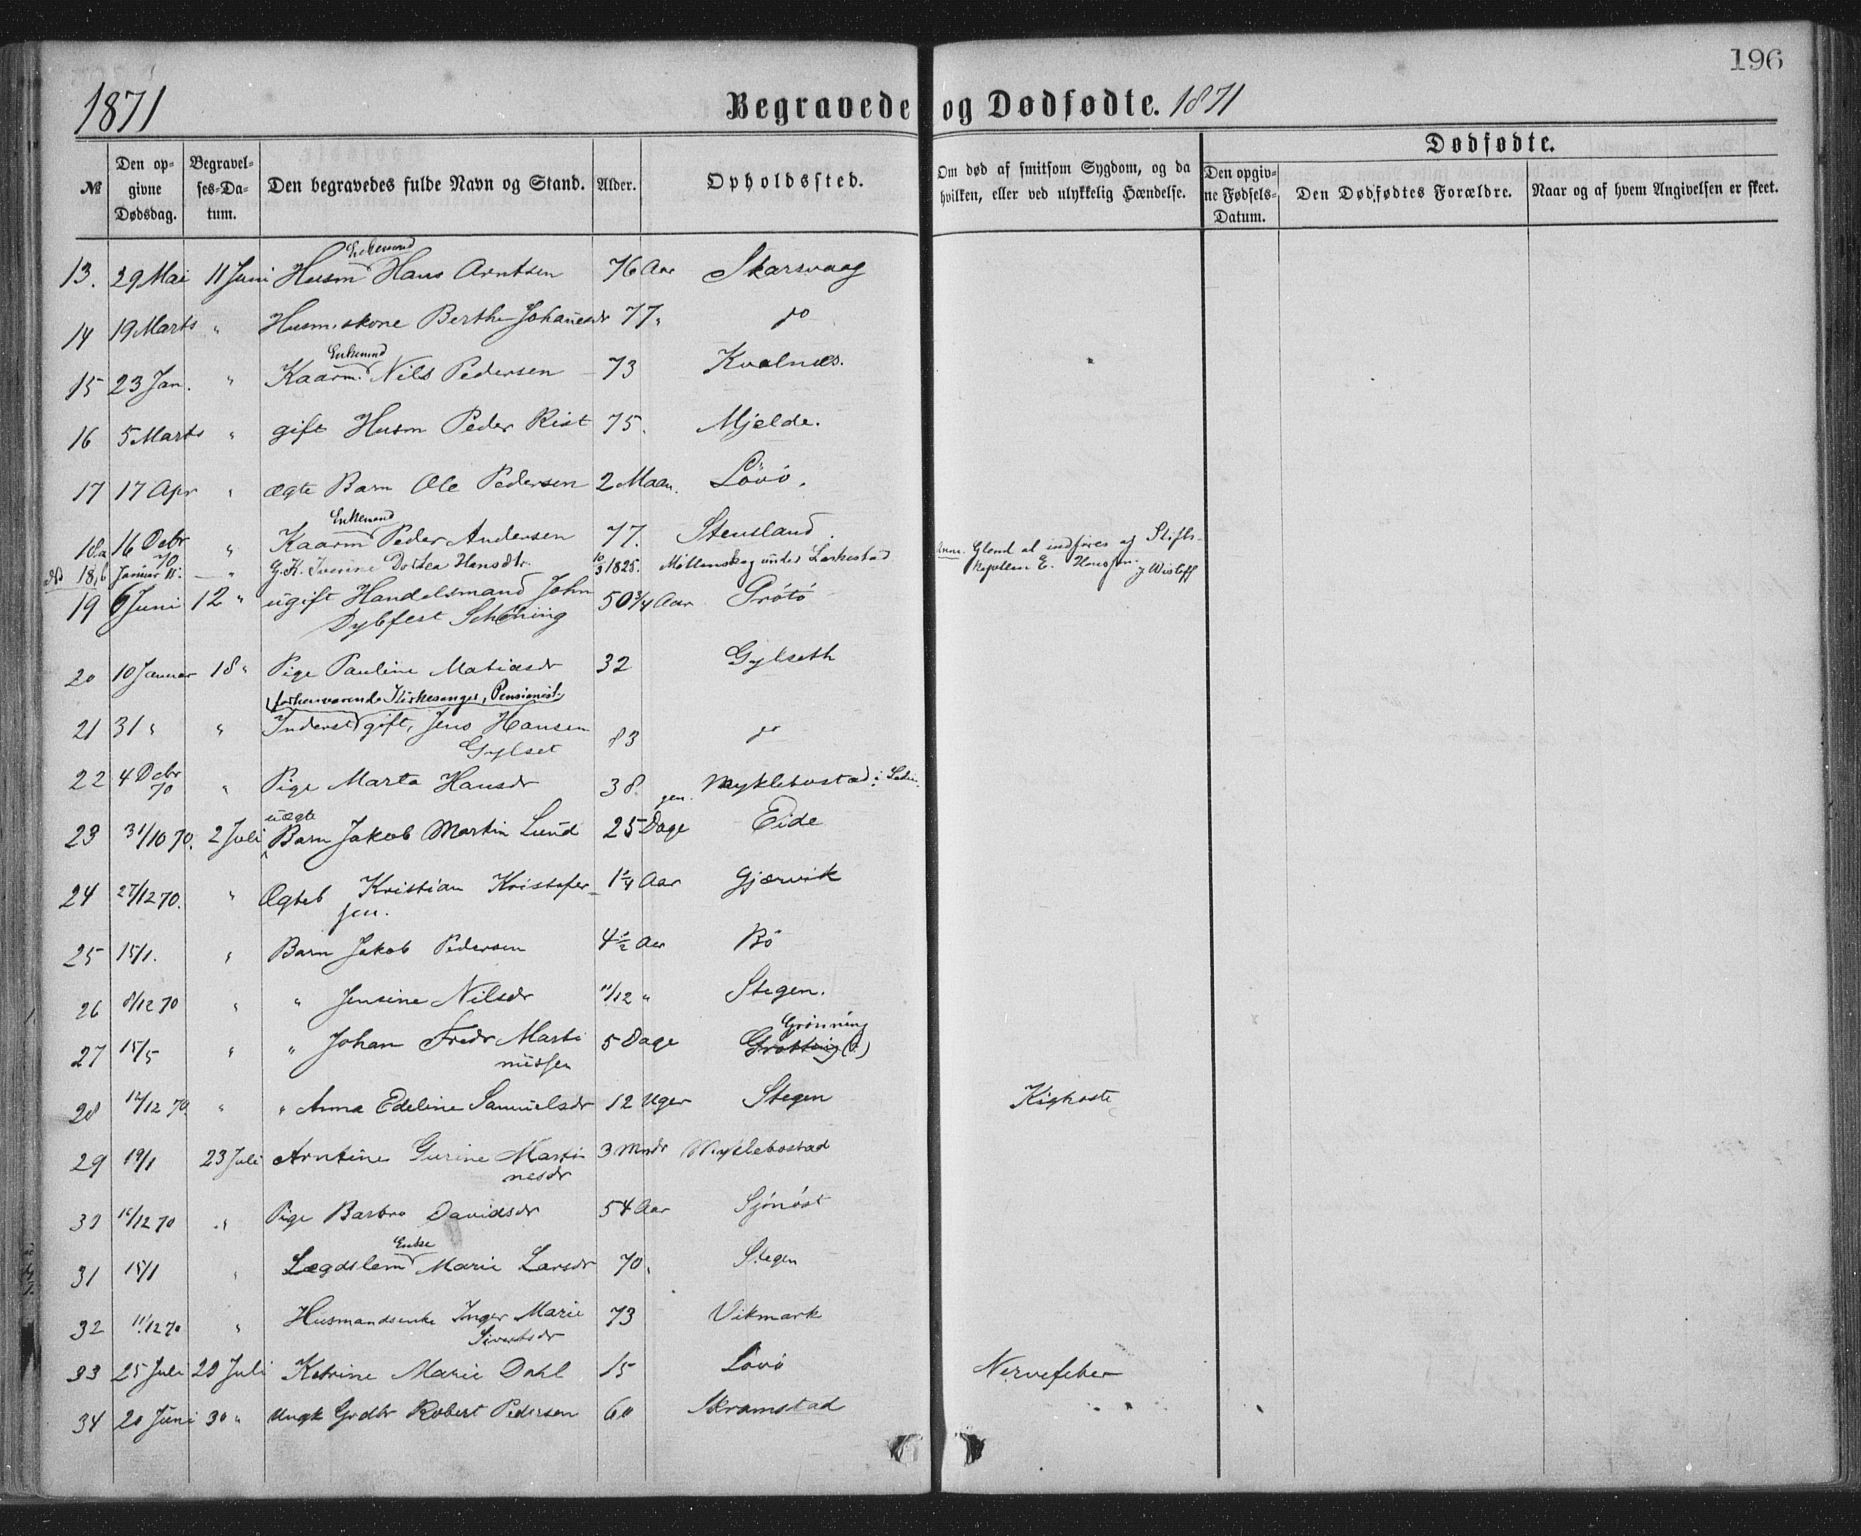 196
1871 Begravede og Dødfødte. 1871
№ Den opgivne Dødsdag. Begravelses-Datum. Den begravedes fulde Navn og Stand. Alder. Opholdssted. Om død af smitsom Sygdom, og da hvilken, eller ved ulykkelig Hændelse. Dødfødte. Den opgivne Fødsels-Datum. Den Dødfødtes Forældre. Naar og af hvem Angivelsen er skeet.
Enkemand
13. 29 Mai 11 Juni Husm Hans Arntsen 76 Aar Skarsvaag
14 19 Marts " Husm.skone Berthe Johanesdr 77 " do
Enkemand
15 23 Jan. " Kaarm. Nils Pedersen 73 Kvalnæs.
16 5 Marts " gift Husm Peder Rist 75. Mjelde.
17 17 Apr " ægte Barn Ole Pedersen 2 Maan. Lövö.
Enkemand
18a 16 Decbr 70 " Kaarm Peder Andersen 77. Stensland.
18,b Januar 11. " G.K. Iverine Dortea Hansdtr. 10/3 1825. Möllenskog under Laskestad Anm. Glemt at indføres af Stifts-
kapellan E. Hansson. Wisløff
19 6 Juni 12 " ugift Handelsmand John 50 3/4 Aar Grötö
Dybfest Schöning
20 10 Januar 18 " Pige Pauline Matiasdr 32 Gylseth
forhenværende Kirkesanger, Pensionist
21 31 " " Inderst gift, Jens Hansen 83 do
Gylset
22 4 Decbr 70 " Pige Marta Hansdr 38. Myklebostad i
uægte
23 31/10 70. 2 Juli Barn Jakob Martin Lund 25 Dage Eide
24 27/12 70. " Ægteb Kristian Kristofer- 1 1/4 Aar Gjærvik
sen.
25 15/1. " Barn Jakob Pedersen 4 1/2 Aar Bö
26 8/12 70 " " Jensine Nilsdr 11/12 " Stegen.
Grönning
27 15/5 " " Johan Fredr Marti 5 Dage Grötting (?)
niussen
28 12/12 70. " " Anna Edeline Samuelsdr 12 Uger Stegen Kighoste
29 19/1 23 Juli Arntine Gurine Marti 3 Mndr Myklebostad
nusdr
30 16/12 70 " Pige Barbro Davidsdr 54 Aar Sjönöst
Enke
31 15/1 " Lægdslem Marie Larsdr 70. Stegen
32 11/12 70 " Husmandsenke Inger Marie 73 Vikmark
Sivertsdr
33 25 Juli 28 Juli Katrine Marie Dahl 15 Lövö Nervefeber
34 20 Juni 30 " Ungk Grdbr Robert Pedersen 60 Skramstad